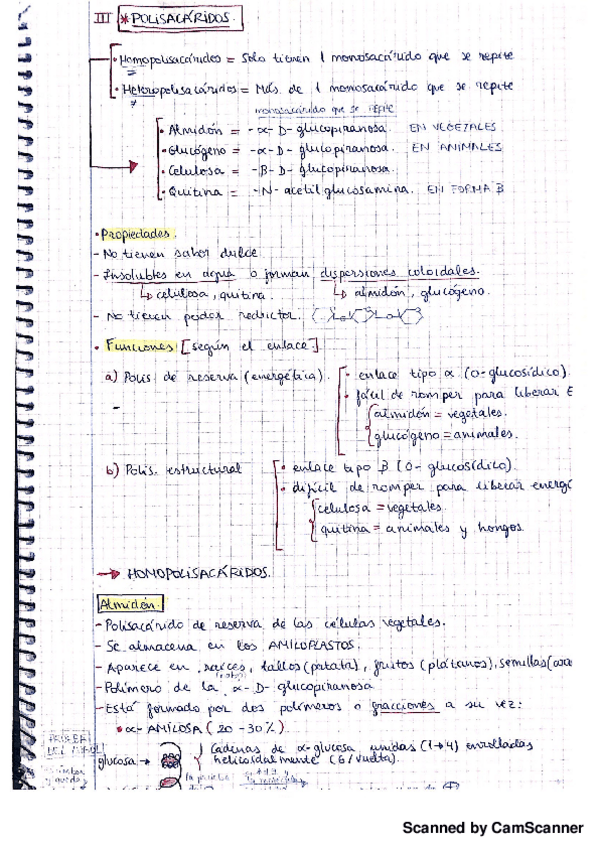 III * POLISACÁRIDOS.
• Homopolisacáridos = Solo tienen 1 monosacárido que se repite
• Heteropolisacáridos = Más de 1 monosacárido que se repite
monosacárido que se repite
• Almidón = -α-D-glucopiranosa. EN VEGETALES
• Glucógeno = -α-D-glucopiranosa. EN ANIMALES
• Celulosa = -β-D-glucopiranosa.
• Quitina = -N-acetil glucosamina. EN FORMA β
• Propiedades.
- No tienen sabor dulce
- Insolubles en agua o forman dispersiones coloidales.
↳ celulosa, quitina. ↳ almidón, glucógeno.
- No tienen poder reductor.
• Funciones [según el enlace].
a) Polis. de reserva (energética). • enlace tipo α (O-glucosídico).
• fácil de romper para liberar E
almidón = vegetales.
glucógeno = animales.
b) Polis. estructural • enlace tipo β (O-glucosídico).
• difícil de romper para liberar energí
celulosa = vegetales.
quitina = animales y hongos.
→ HOMOPOLISACÁRIDOS.
Almidón.
- Polisacárido de reserva de las células vegetales.
- Se almacena en los AMILOPLASTOS.
- Aparece en raíces, tallos (patata), frutos (plátanos), semillas
- Polímero de la α-D-glucopiranosa
- Está formado por dos polímeros o fracciones a su vez:
• α-AMILOSA (20-30%)
glucosa → Cadenas de α-glucosa unidas (1→4) enrolladas
helicoidalmente (6/vuelta).
Scanned by CamScanner